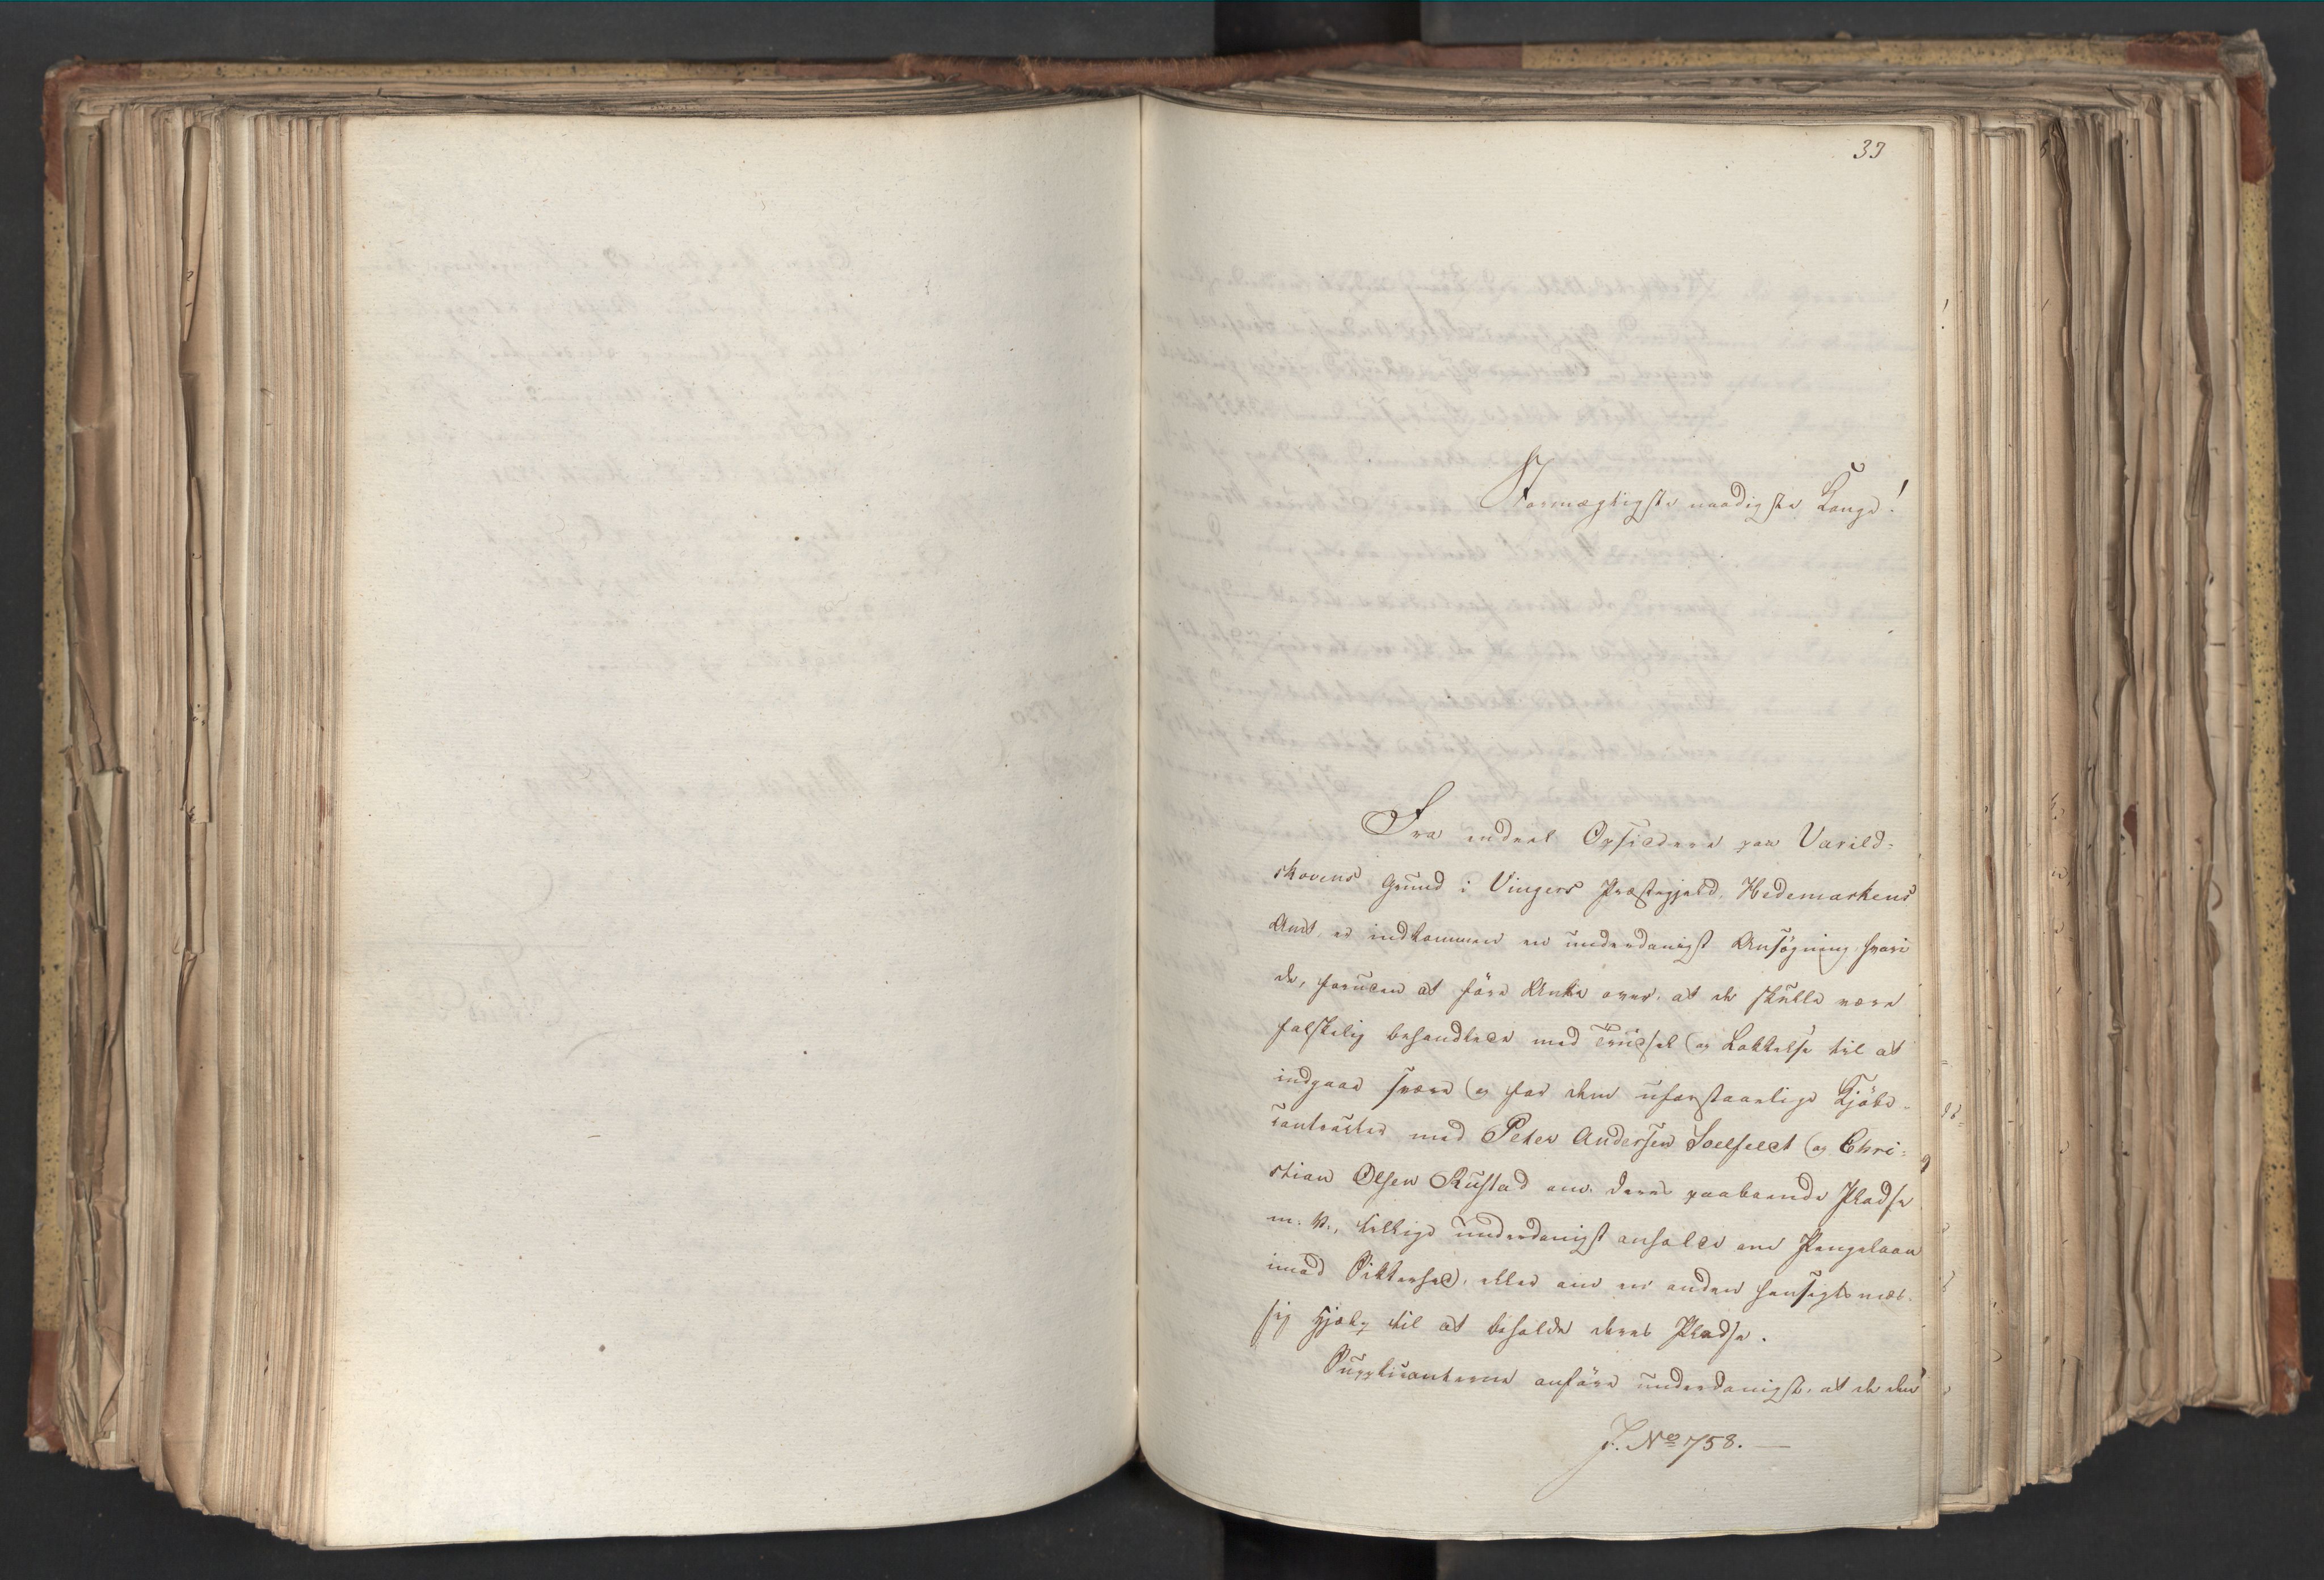 33
Stormægtigste naadigste Konge!
Fra endeel Opsiddere paa Varild-
skovens Grund i Vingers Præstegjeld, Hedemarkens
Amt, er indkommen en underdanigst Ansøgning, hvori
de, foruden at føre Anke over, at de skulle være
falskelig behandlede med Trudsel og Lokkelse til at
indgaae svære og for dem uforstaaelige Kjøbe-
contracter med Peder Andersen Soelseet og Chri-
stian Olsen Rustad om deres paaboende Pladse
m. v., tillige underdanigst anholde om Pengelaan
imod Sikkerhed, eller om en anden hensigtsmæs-
sig Hjælp til at beholde deres Pladse.
Supplicanterne anføre underdanigst, at de den
J. No 758.